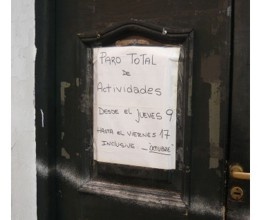 PARO TOTAL
DE
Actividades
DESDE EL JUEVES 9
HASTA EL VIERNES 17
INCLUSIVE _ OCTUBRE